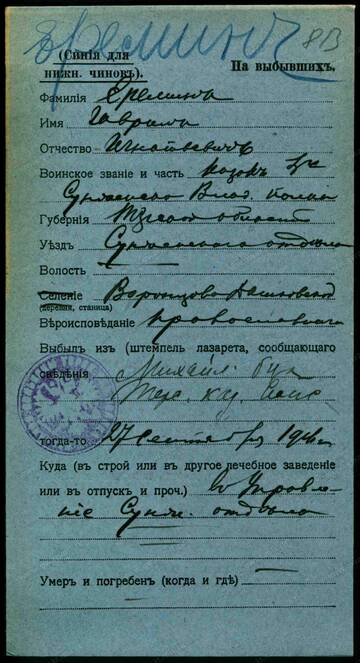 Еремин
(Синія для
нижн. чиновъ).
На выбывшихъ.
Фамилія Еремина
Имя Гаврила
Отчество Игнатьевичъ
Воинское званіе и часть казакъ
Сунженско Влад. полка
Губернія Терской области
Уѣздъ Сунженскаго отдѣла
Волость
Селеніе Воронцово Дашковской
(деревня, станица)
Вѣроисповѣданіе православнаго
Выбылъ изъ (штемпель лазарета, сообщающаго
свѣдѣнія) Михайл.
Тер.
тогда-то 27 Сентября 191
Куда (въ строй или въ другое лечебное заведеніе
или въ отпускъ и проч.) въ Управле-
ніе Сунж. отдѣла
Умеръ и погребенъ (когда и гдѣ)